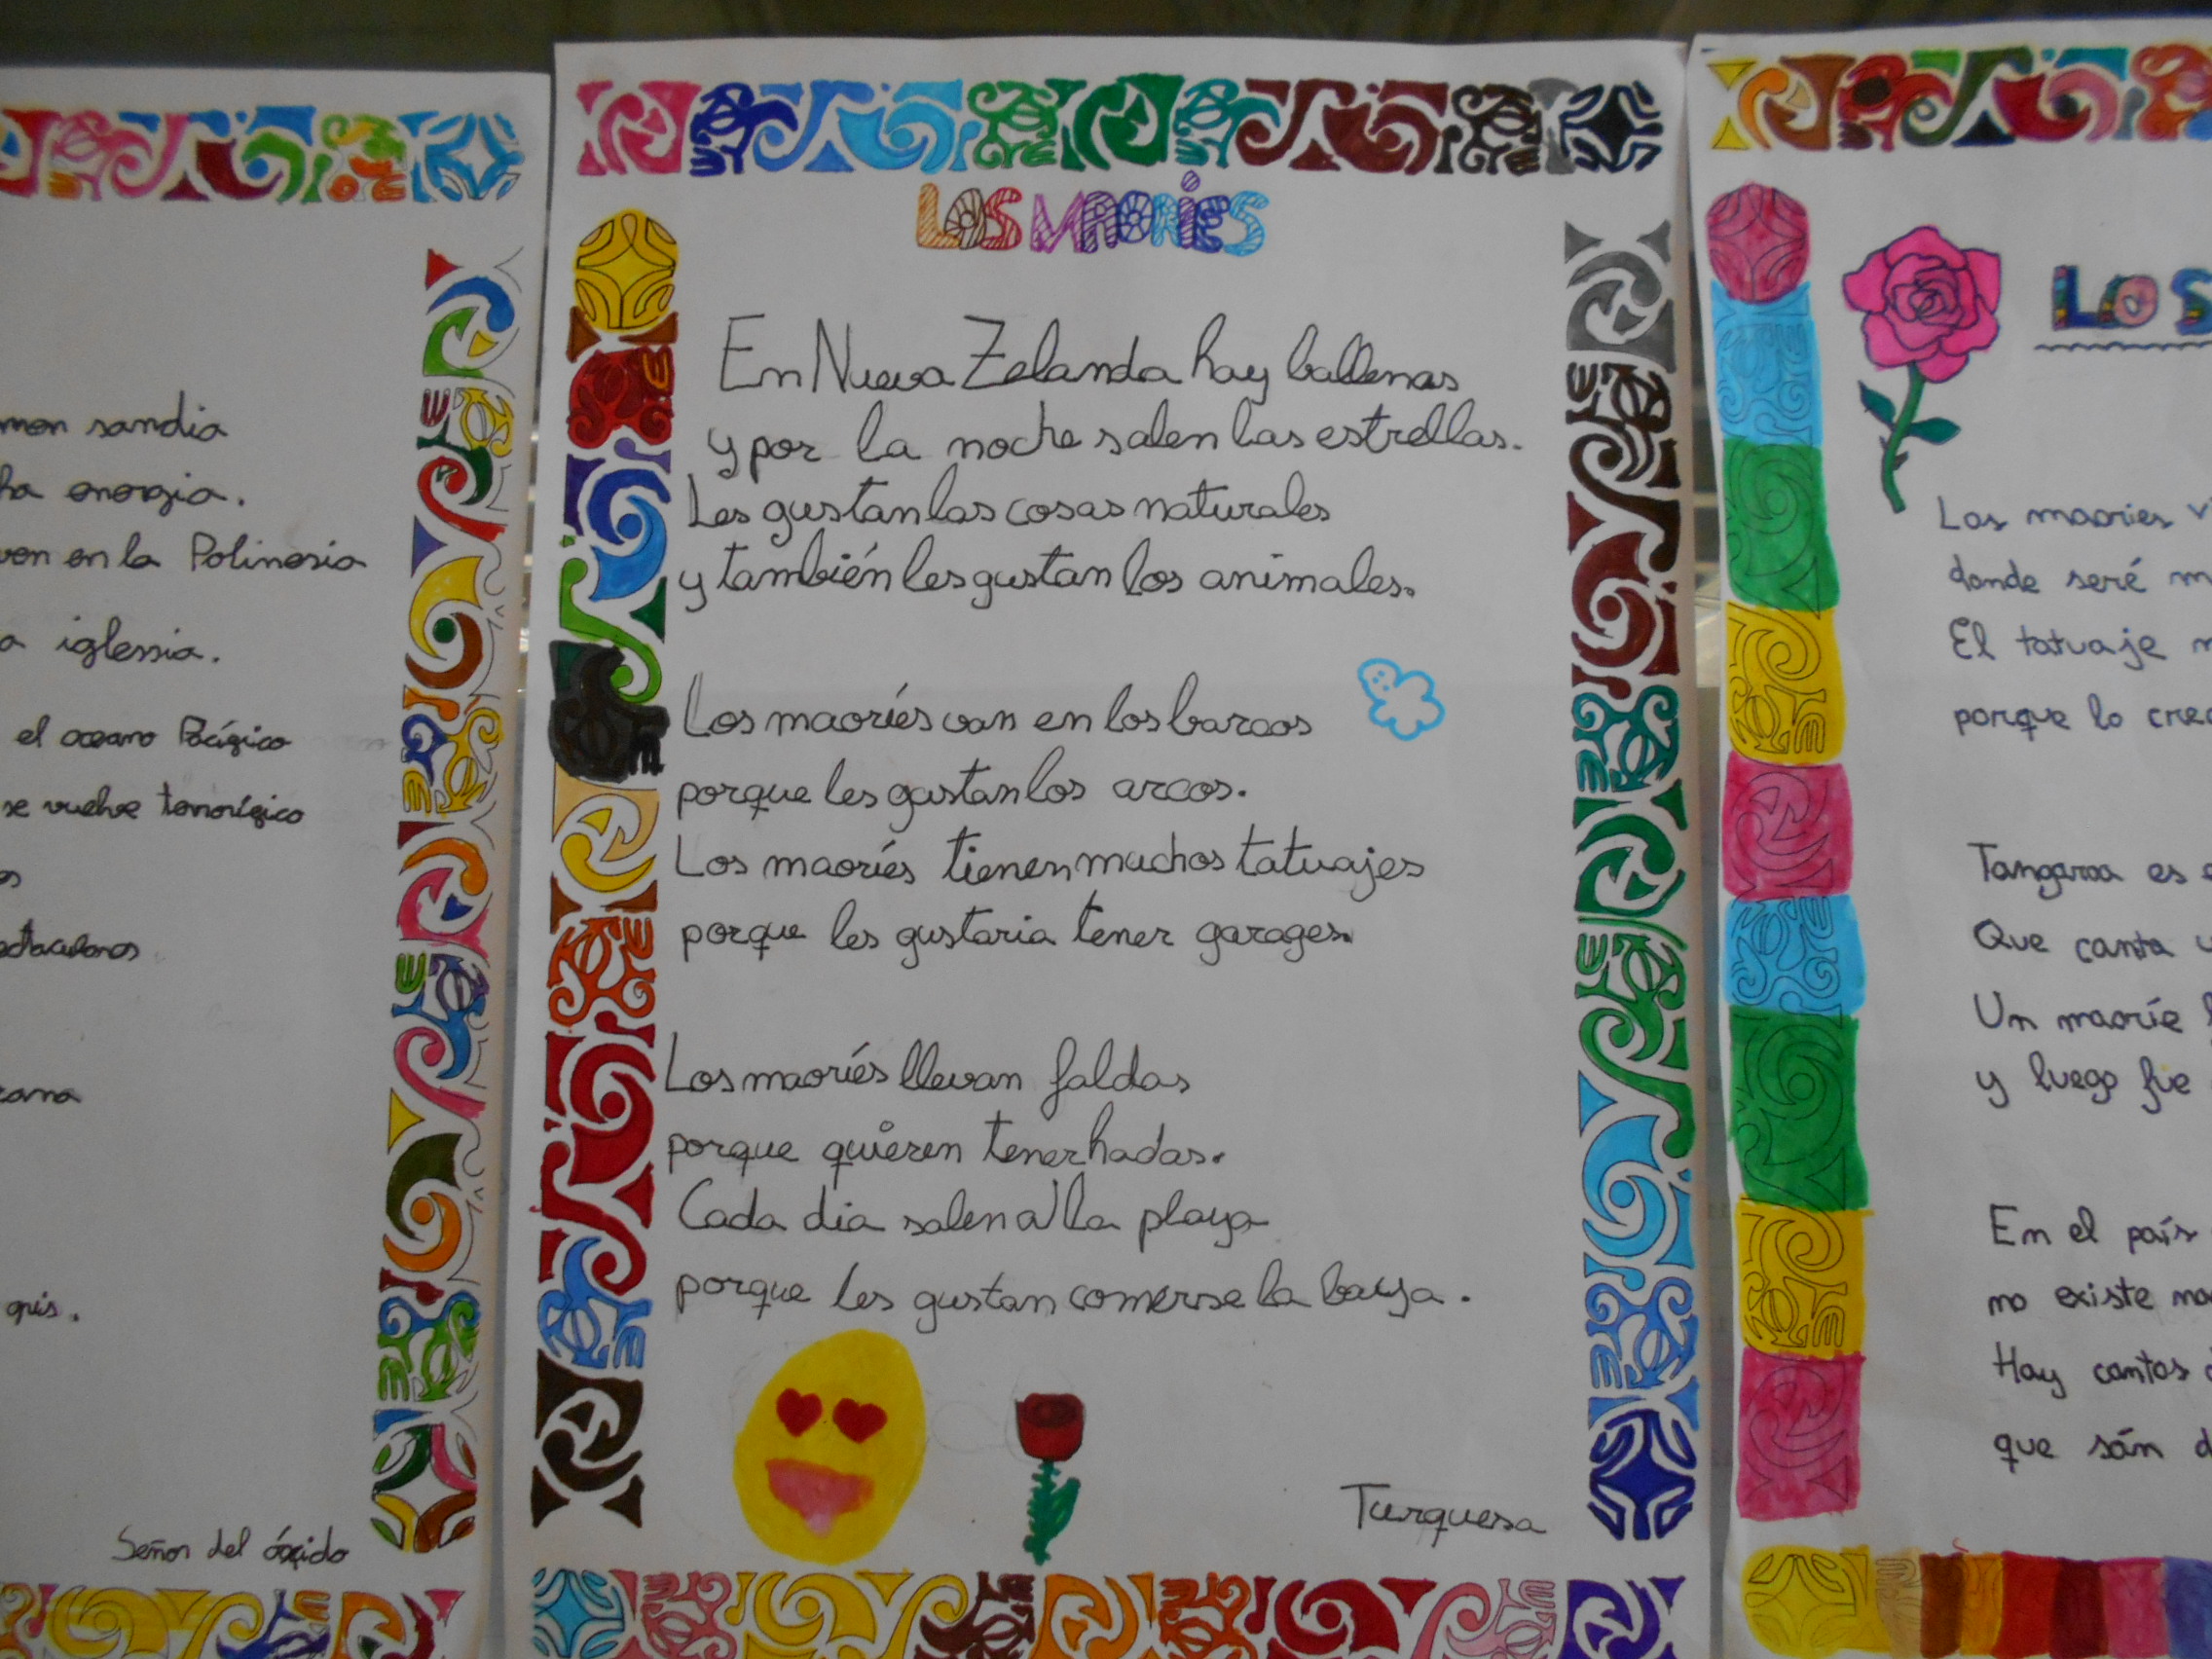 mon sandia
ha energia.
ven en la Polinesia
a iglessia.
el oceano Pácigico
se vuelve terrorígico
os
ectaculares.
gris.
Señor del óxido
LOS MAORIES
En Nueva Zelanda hay ballenas
y por la noche salen las estrellas.
Les gustan las cosas naturales
y también les gustan los animales.
Los maoríes van en los barcos
porque les gustan los arcos.
Los maoríes tienen muchos tatuajes
porque les gustaria tener garages.
Los maoríes llevan faldas
porque quieren tener hadas.
Cada dia salen a la playa
porque les gustan comerse la baya.
Turquesa
LOS
Los maories v
donde seré m
El tatuaje m
porque lo cree
Tangaroa es e
Que canta u
Un maoríe
y luego fue
En el país
no existe
Hay cantos d
que són d